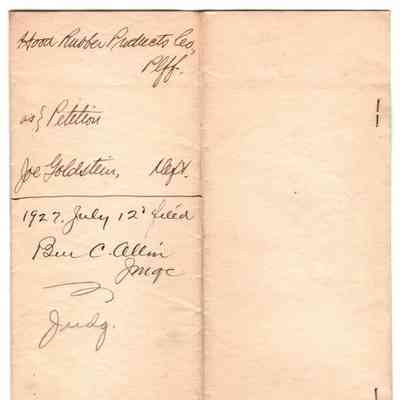 Hood Rubber Products Co,
Plff.
vs} Petition
Joe Goldstein, Deft.
1927. July 12" filed
Ben C. Allin
JMGC
Judg.